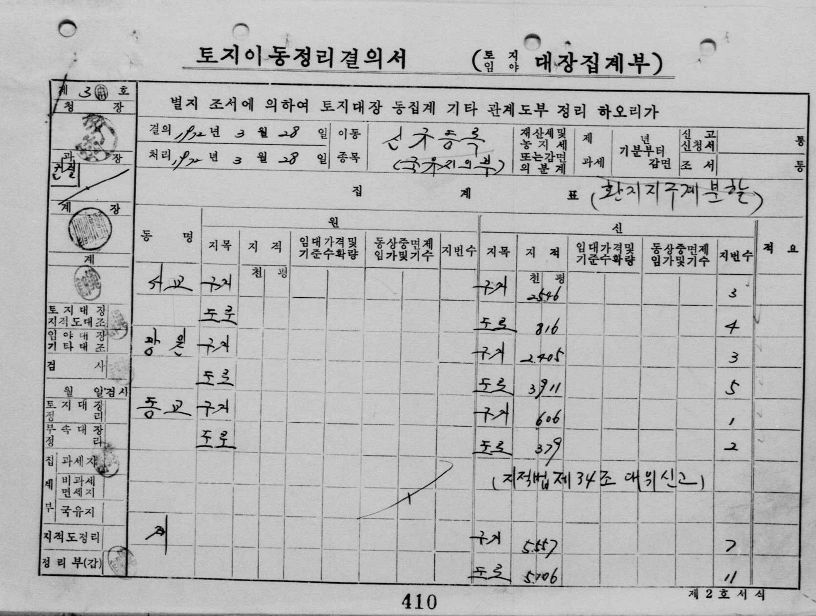 토지이동정리결의서 (토지 임야 대장집계부)
제 3 호
청 장
별지 조서에 의하여 토지대장 동집계 기타 관계도부 정리 하오리가
결의 1972 년 3 월 28 일 이동 신규등록 재산세및 농지세 또는감면의 분계 제 과세 년 기분부터 감면 신고 신청서 통
처리 1972 년 3 월 28 일 종목 (국유지의부) 조 서 통
과 장
집 계 표 (환지지구계분할)
계 장
동 명 원 신 적 요
지목 지 적 임대가격및 기준수확량 동상중면제 임가및기수 지번수 지목 지 적 임대가격및 기준수확량 동상중면제 임가및기수 지번수
계
천 평 천 평
서교 구거 구거 2546 3
도로 도로 816 4
토지대장 지적도대조
임야대장 기타대조
구거 구거 2.405 3
검 사
도로 도로 3911 5
월 일 검시
토지대장 정 리
동교 구거 구거 606 1
부속대장 정 리
도로 도로 379 2
집 계 부
과세지
비과세 면세지
국유지
(지적법 제34조 대위신고)
지적도정리
계 구거 5.557 7
정리부(갑)
도로 5.106 11
제2호서식
410